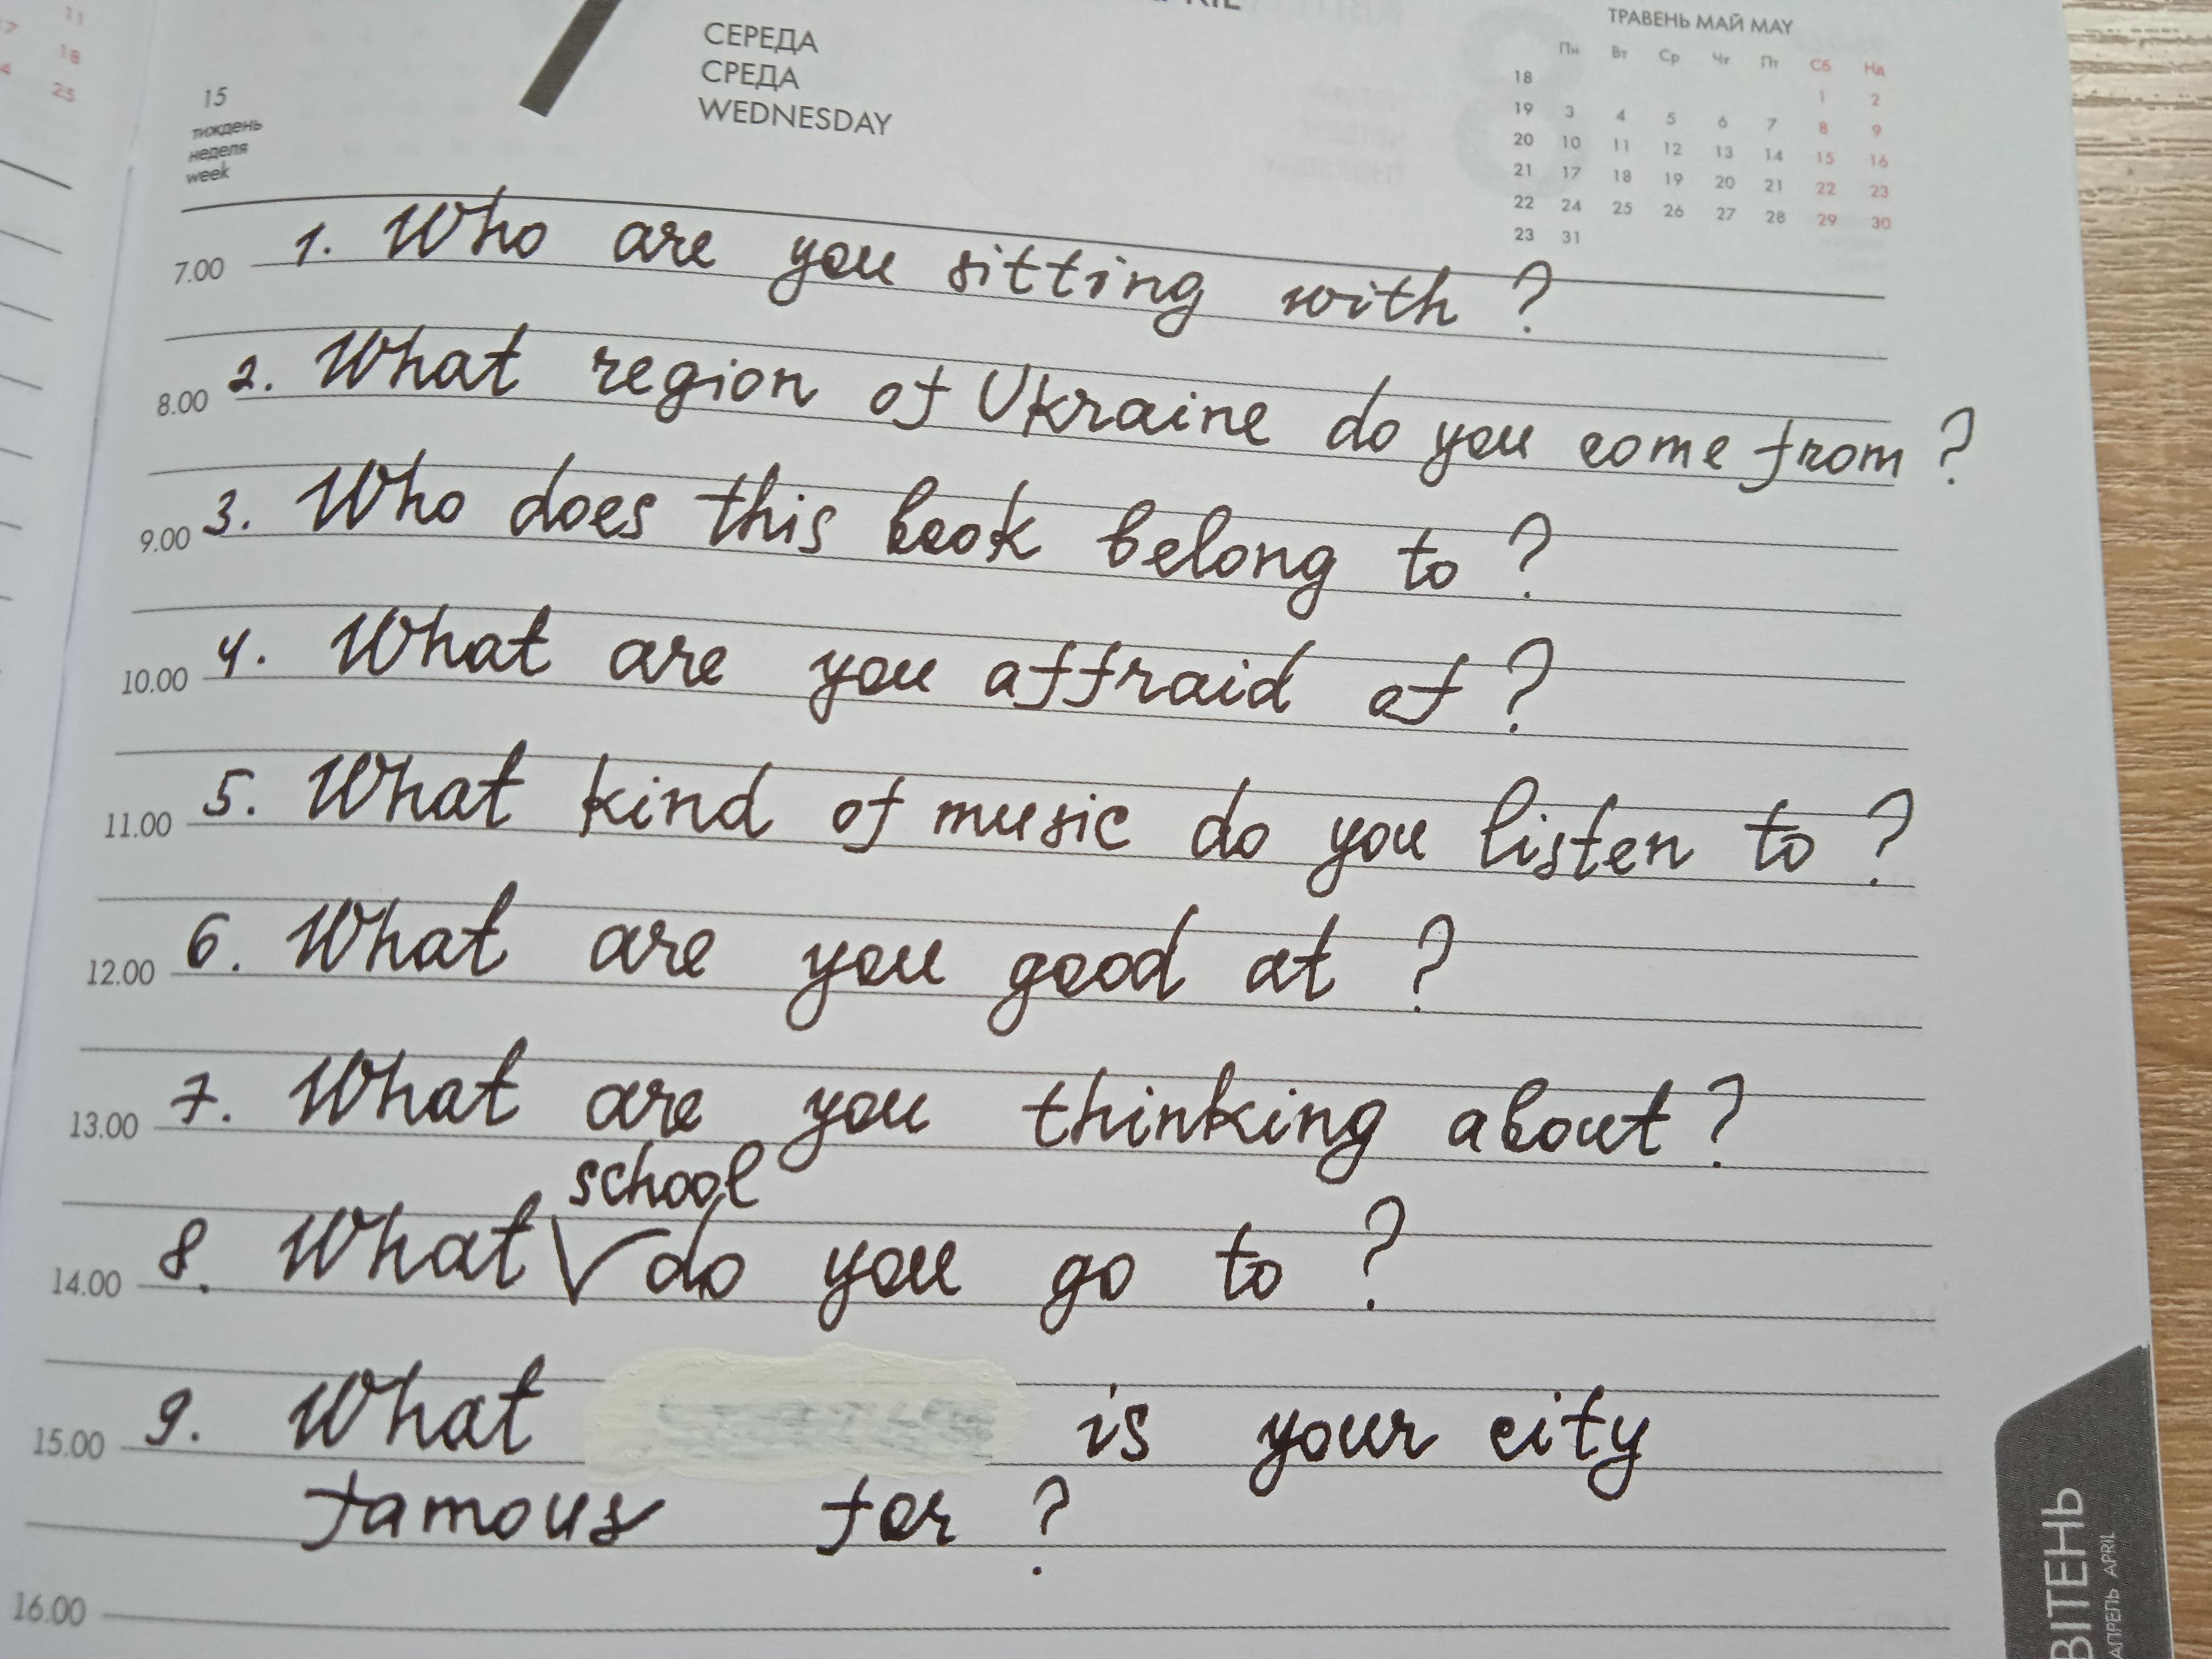 СЕРЕДА
СРЕДА
WEDNESDAY
15
тиждень
неделя
week
11
18
25
ТРАВЕНЬ МАЙ MAY
Пн Вт Ср Чт Пт Сб Нд
18 1 2
19 3 4 5 6 7 8 9
20 10 11 12 13 14 15 16
21 17 18 19 20 21 22 23
22 24 25 26 27 28 29 30
23 31
7.00 1. Who are you sitting with ?
8.00 2. What region of Ukraine do you come from ?
9.00 3. Who does this book belong to ?
10.00 4. What are you affraid of ?
11.00 5. What kind of music do you listen to ?
12.00 6. What are you good at ?
13.00 7. What are you thinking about ?
school
14.00 8. What do you go to ?
15.00 9. What is your city
famous for ?
16.00
ВІТЕНЬ
АПРЕЛЬ APRIL